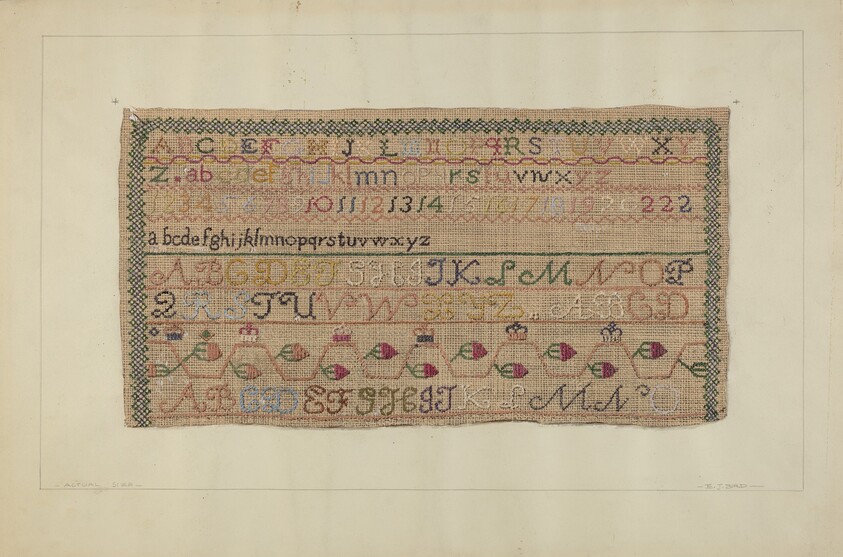 A B C D E F G H I J K L M N O P Q R S T U V W X Y
Z. a b c d e f g h i j k l m n o p q r s t u v w x y z
1 2 3 4 5 6 7 8 9 10 11 12 13 14 15 16 17 18 19 20 222
a b c d e f g h i j k l m n o p q r s t u v w x y z
A B C D E F G H I J K L M N O P
Q R S T U V W X Y Z A B C D
A B C D E F G H I J K L M N O
ACTUAL SIZE